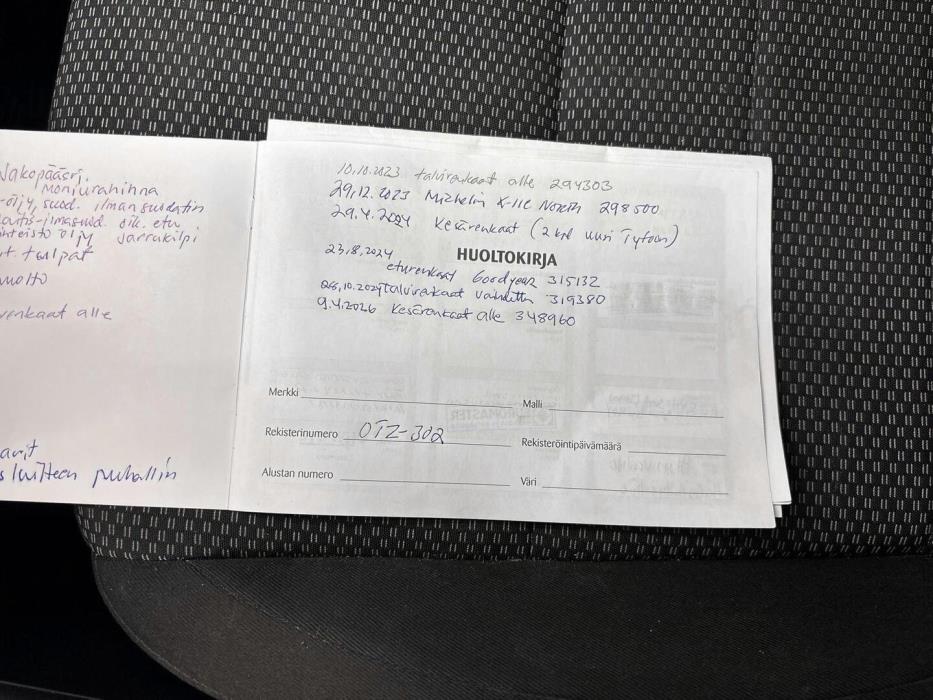 Jakopääsrj.
moniurahihna
-öljy, suod. ilmansuodatin
öljy jarrukilpi
tulpat
huolto
renkaat alle
puhallin
10.10.2023 talvirenkaat alle 294303
29.12.2023 Michelin X-ICE North 298500
29.4.2024 Kesärenkaat (2 kpl uusi Tyfoon)
23.8.2024
HUOLTOKIRJA
eturenkaat Goodyear 315132
28.10.2024 talvirenkaat vaihdettu 319380
9.4.2026 Kesärenkaat alle 348960
Merkki
Malli
Rekisterinumero OTZ-302
Rekisteröintipäivämäärä
Alustan numero
Väri